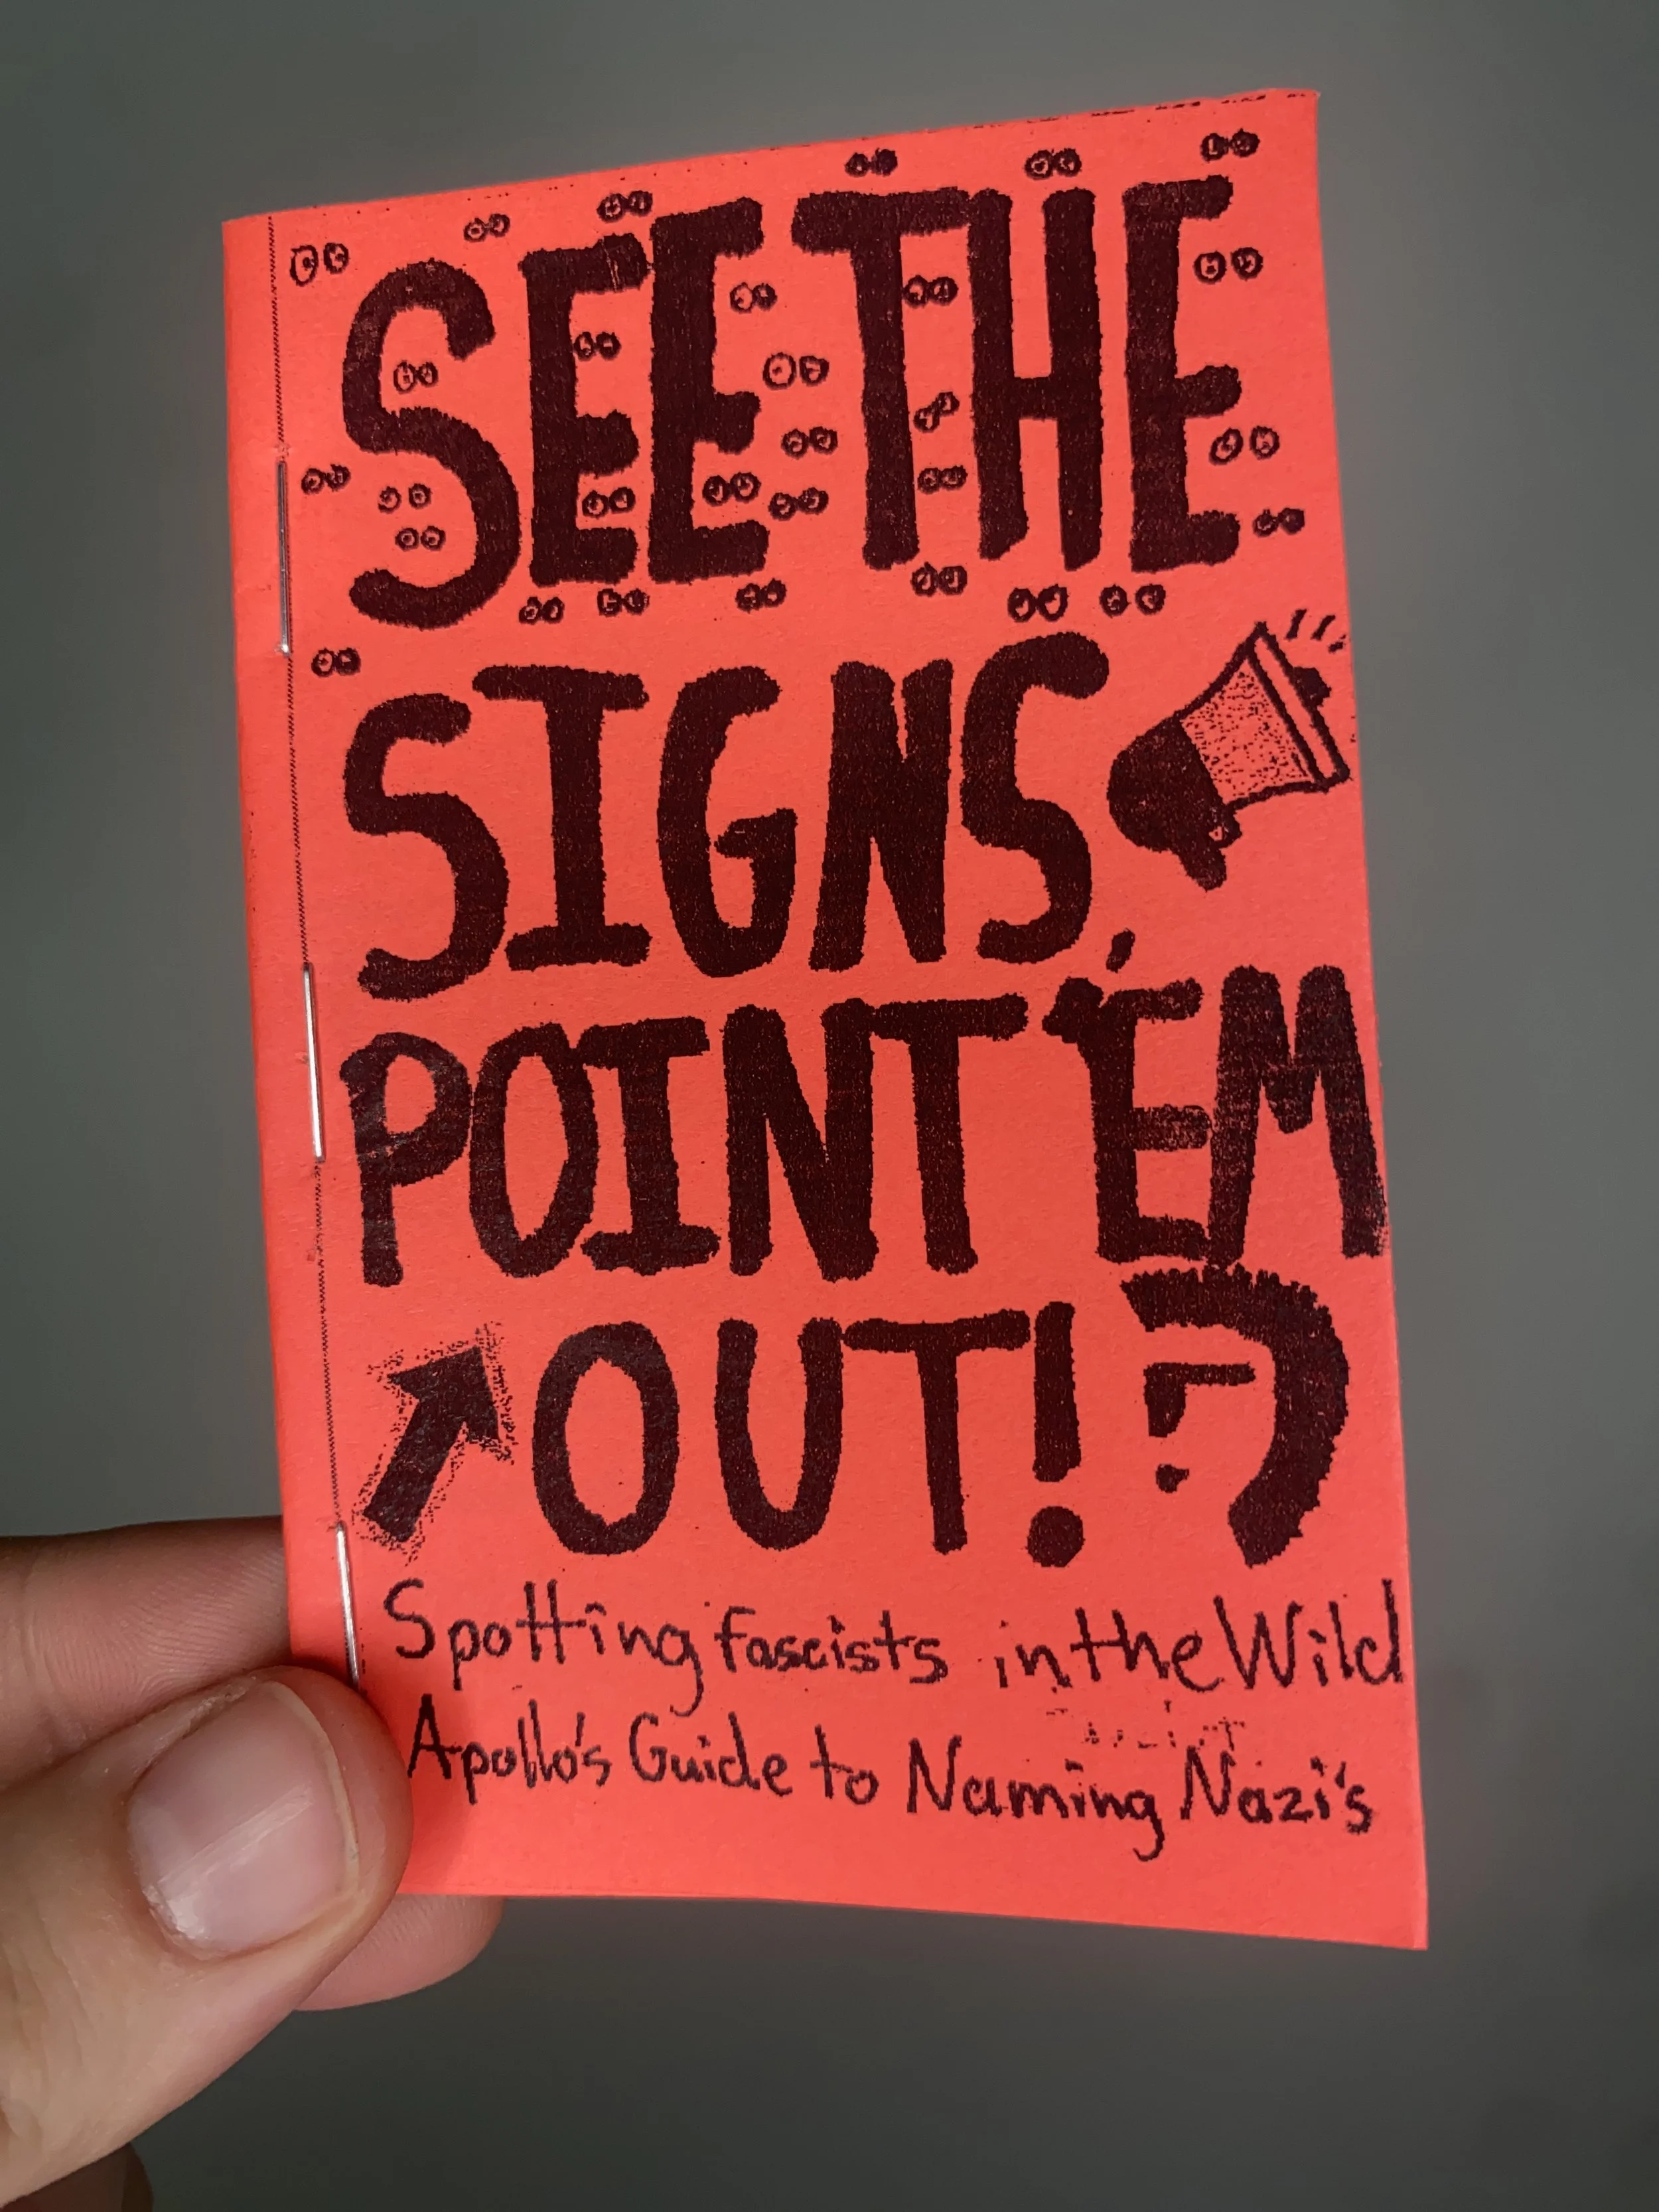 SEE THE
SIGNS,
POINT 'EM
OUT!
Spotting fascists in the Wild
Apollo's Guide to Naming Nazi's